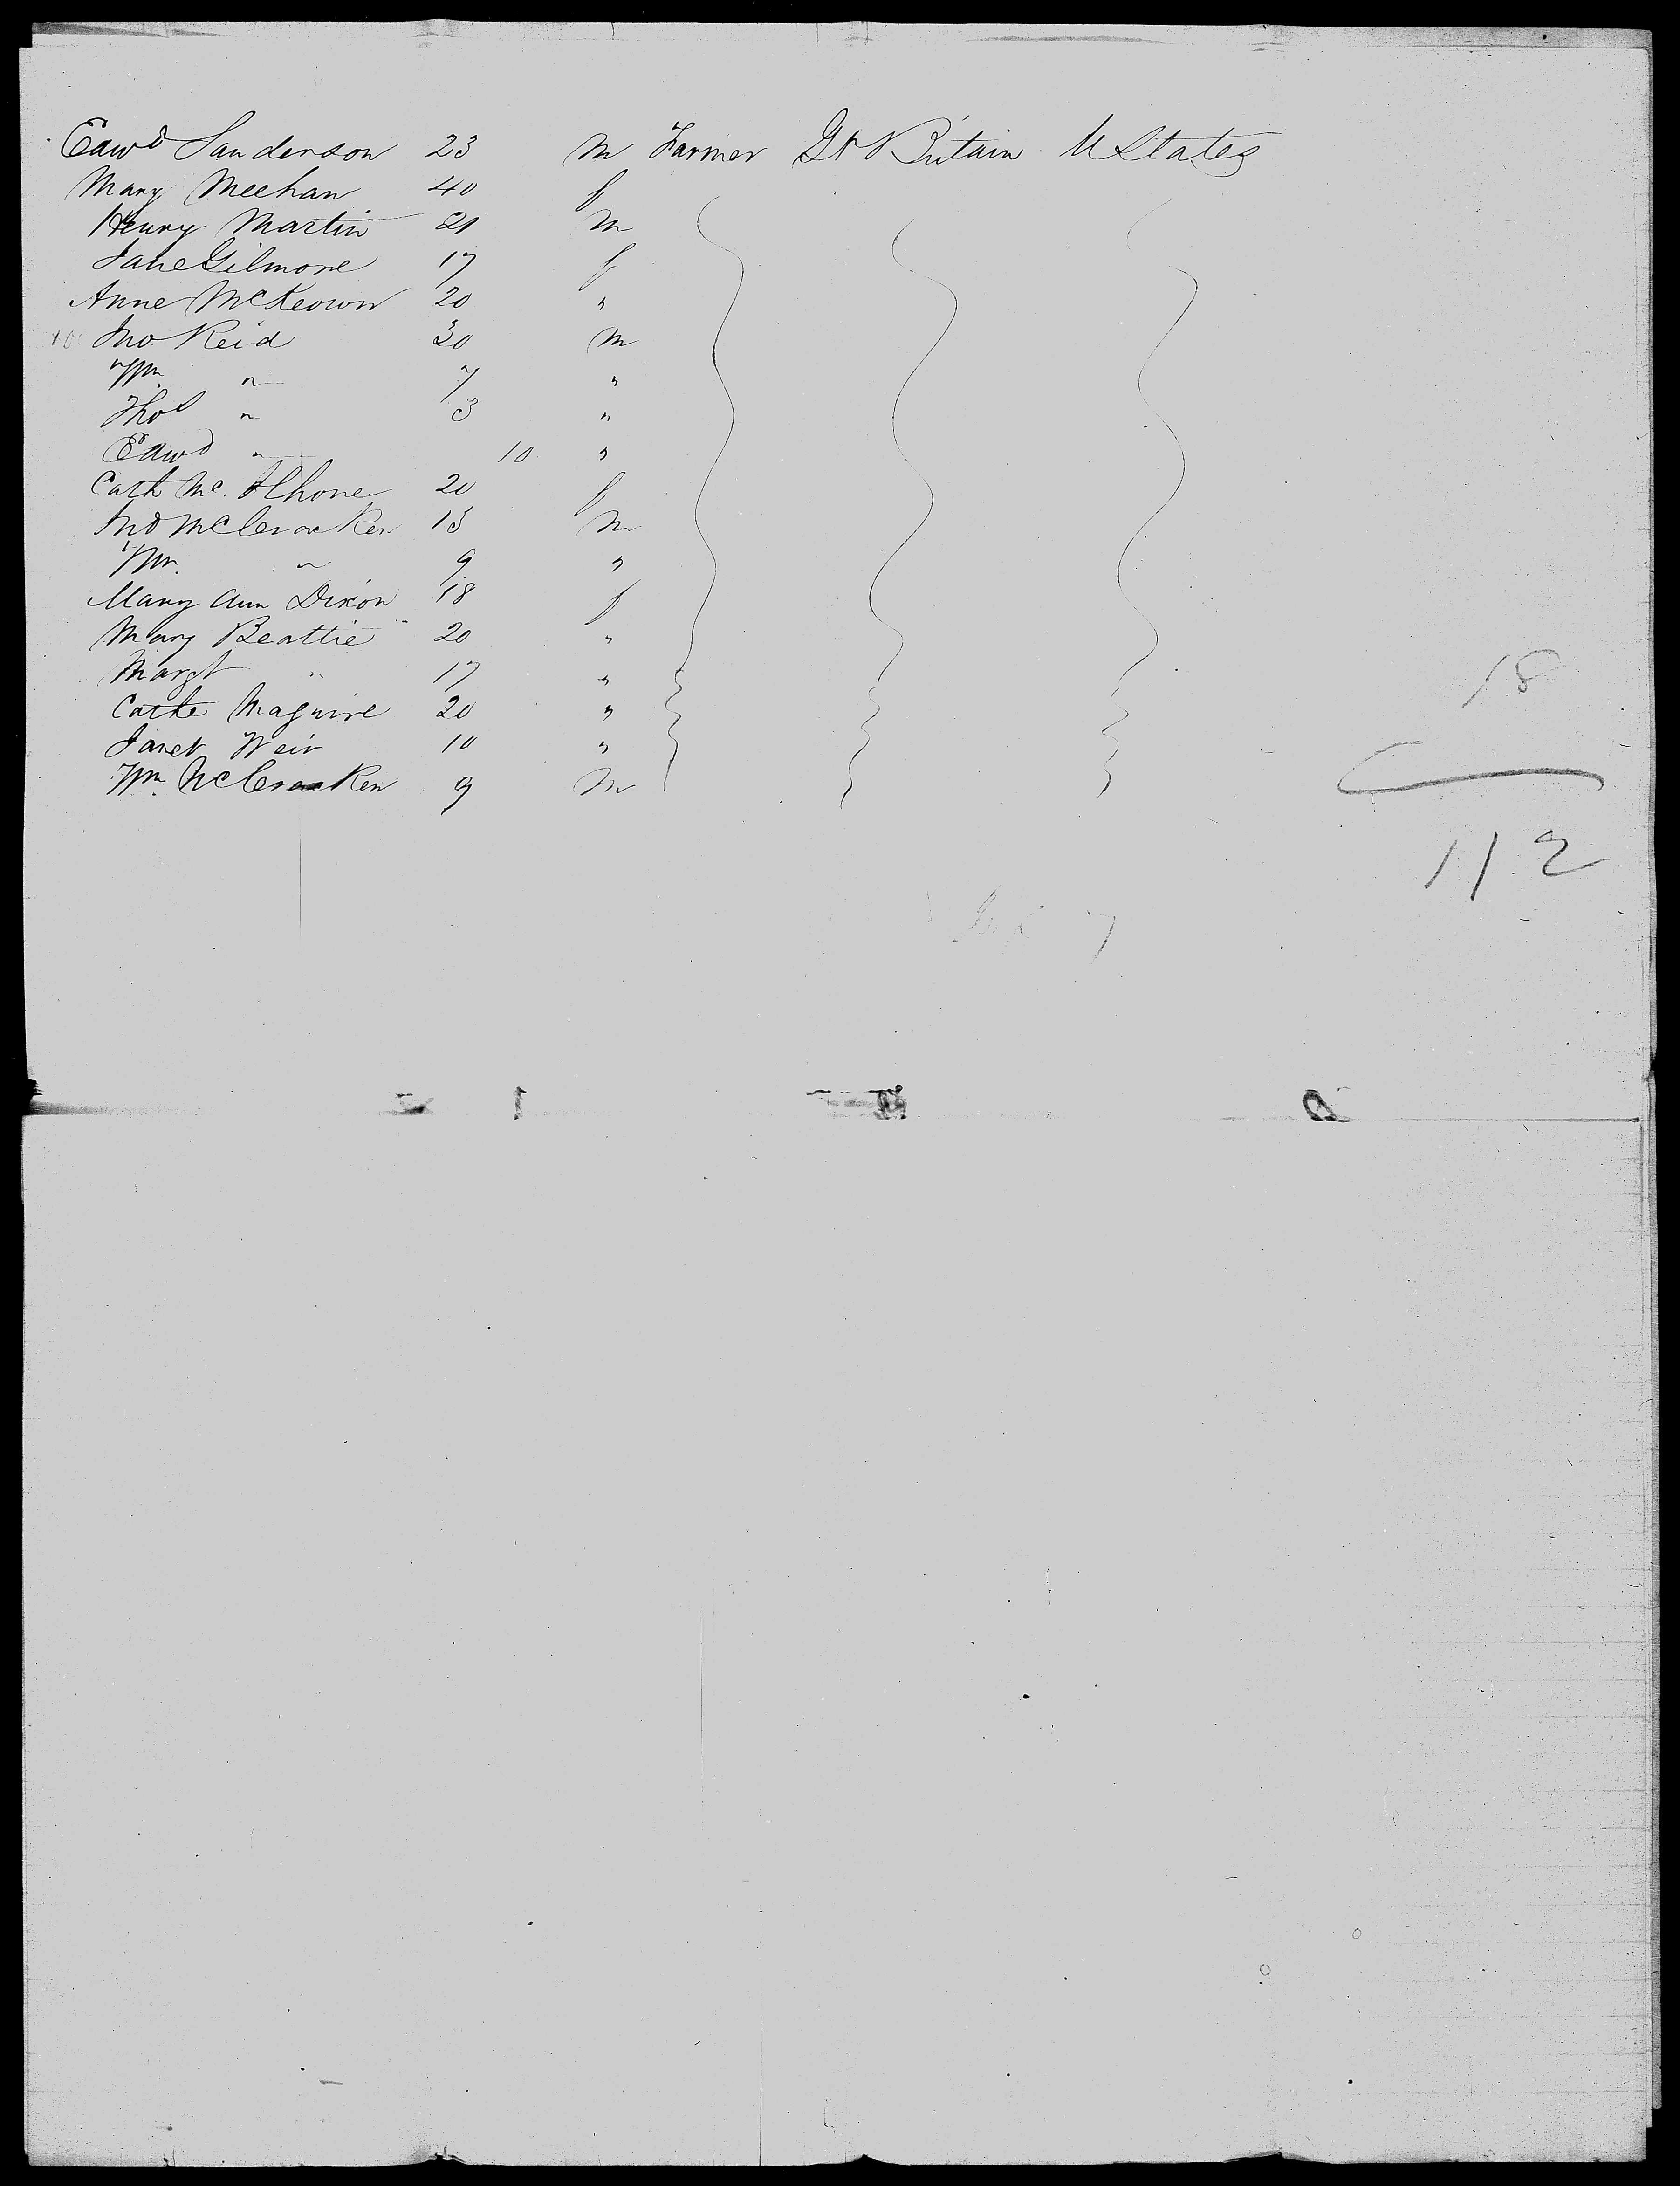 Edwd Sanderson 23 M Farmer Gt Britain U States
Mary Meehan 40 f
Henry Martin 21 M
Jane Gilmore 17 f
Anne McKeown 20 "
Jno Reid 30 M
Wm " 7 "
Thos " 3 "
Edwd " 10 "
Cath Mc. Ilhone 20 f
Jno McCracken 13 M
Wm. " 9 "
Mary Ann Dixon 18 f
Mary Beattie 20 "
Margt " 17 "
Cathe Maguire 20 "
Janet Weir 10 "
Wm McCracken 9 M
18
112